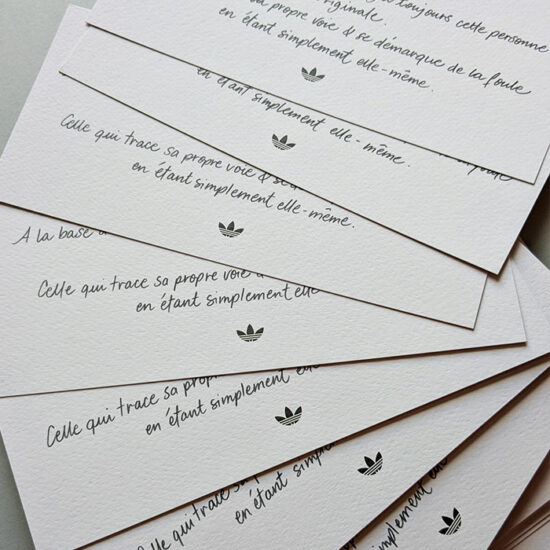 toujours cette personne
originale.
sa propre voie & se démarque de la foule
en étant simplement elle-même.
en étant simplement elle-même.
Celle qui trace sa propre voie & se d
en étant simplement elle-même.
A la base
Celle qui trace sa propre voie
en étant simplement elle
Celle qui trace sa prop
en étant simplement ell
Celle qui trace sa p
en étant simp
Celle qui trace sa
en étant